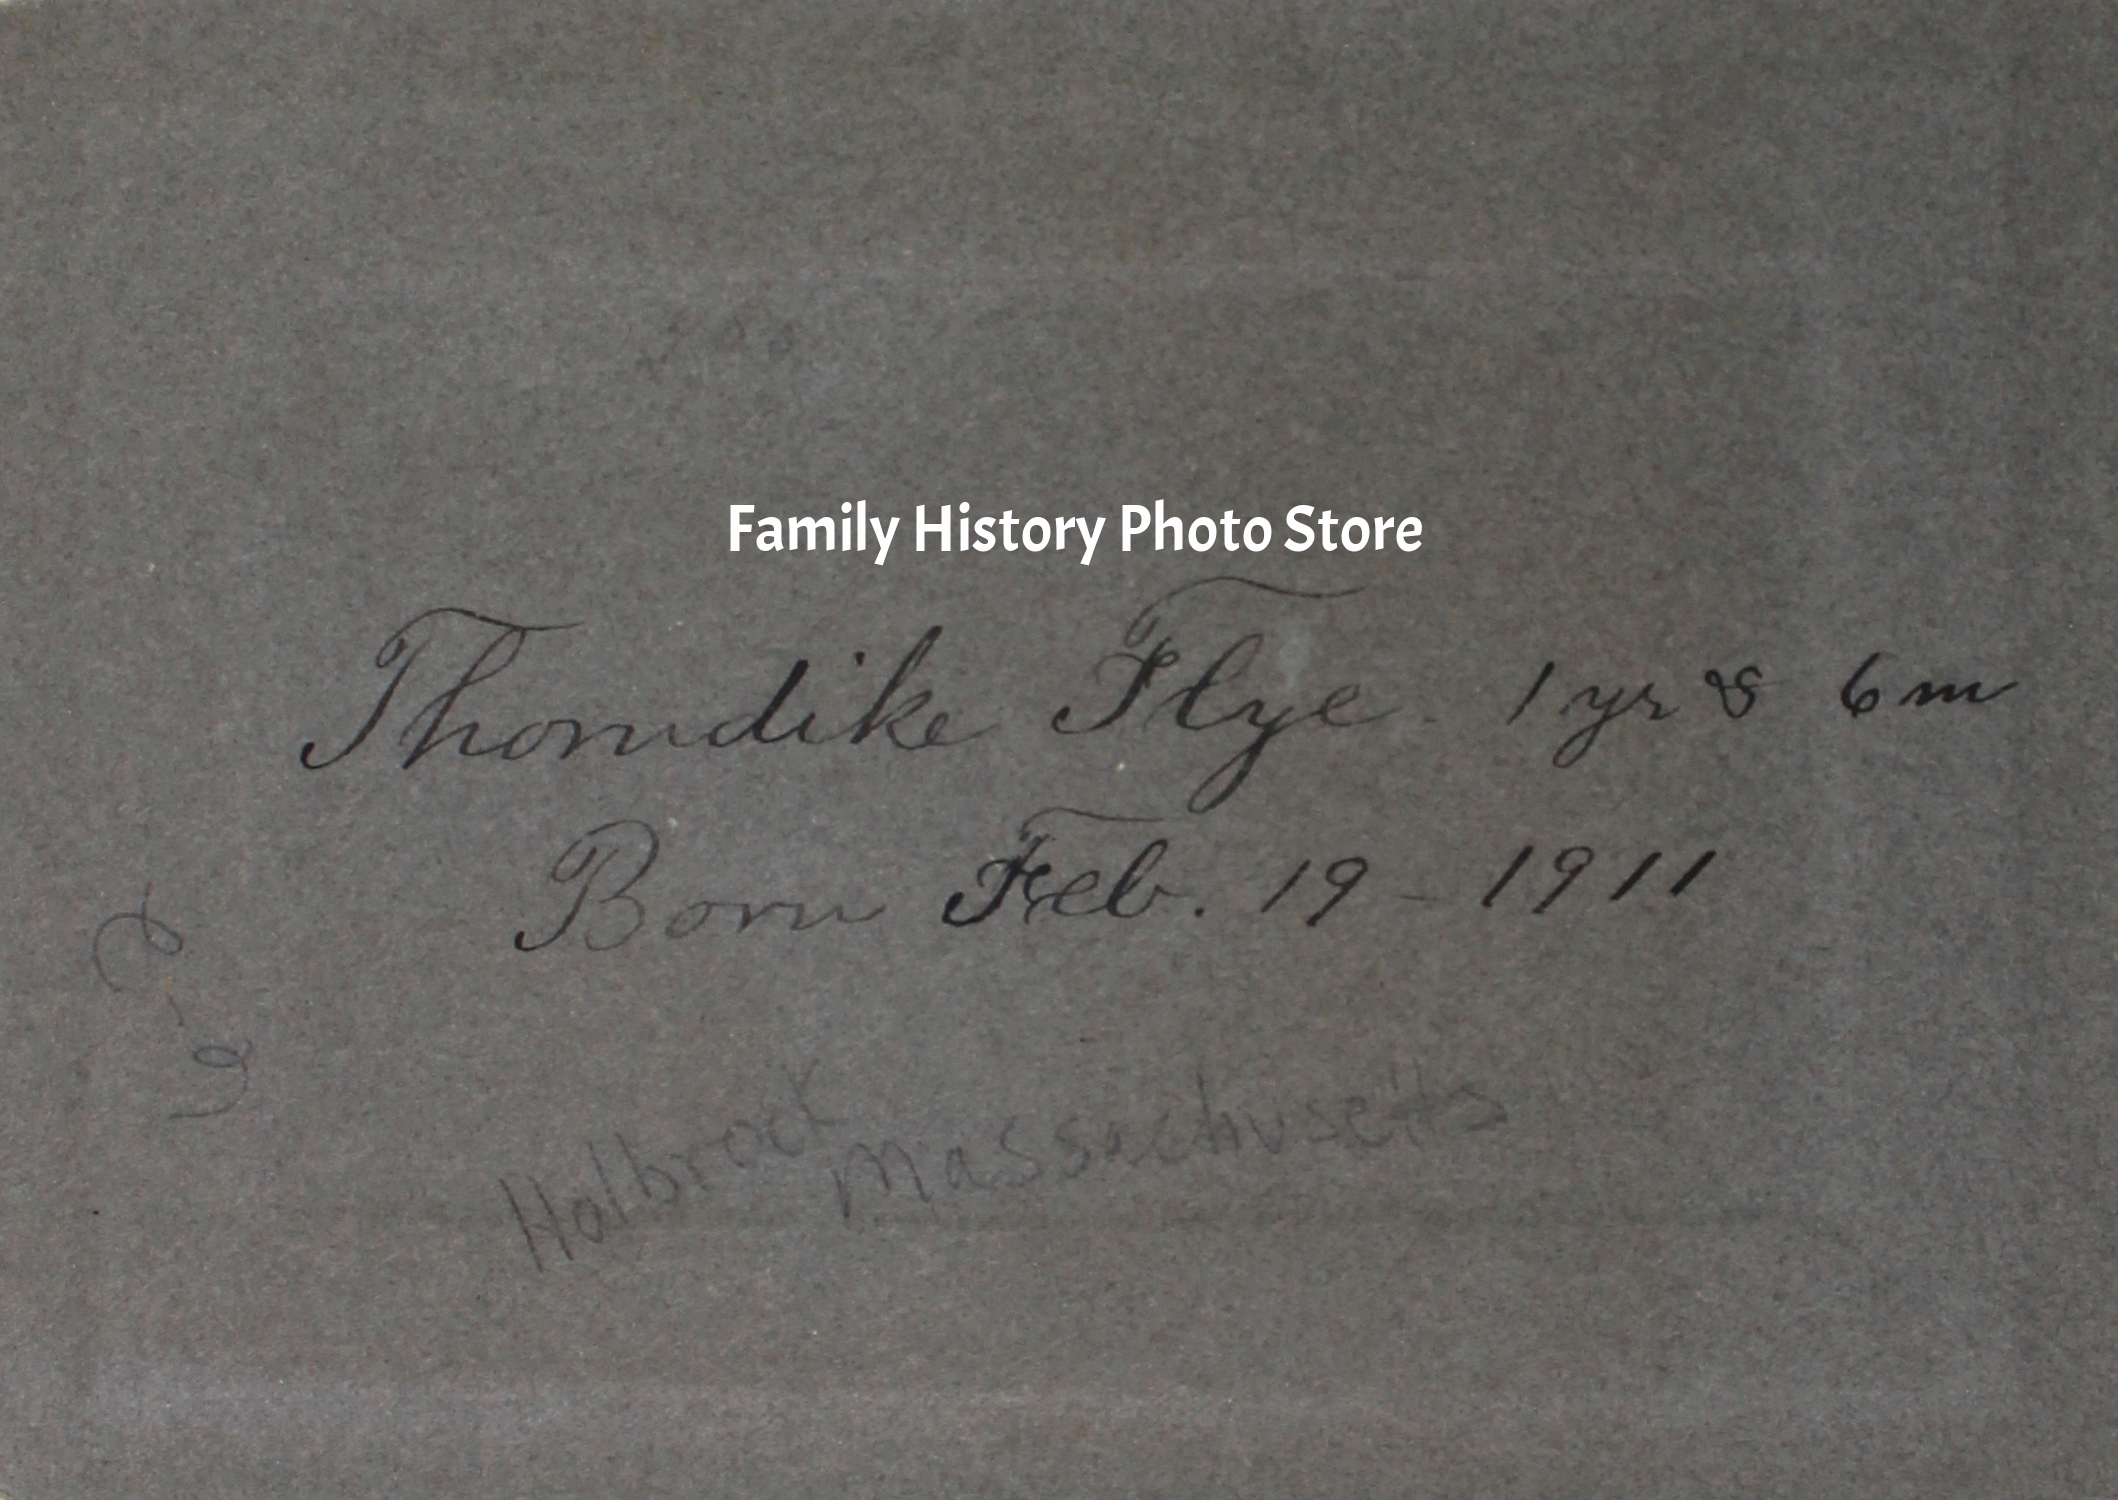 Family History Photo Store
Thorndike Flye. 1 yr & 6 m
Born Feb. 19 - 1911
Holbrook Massachusetts